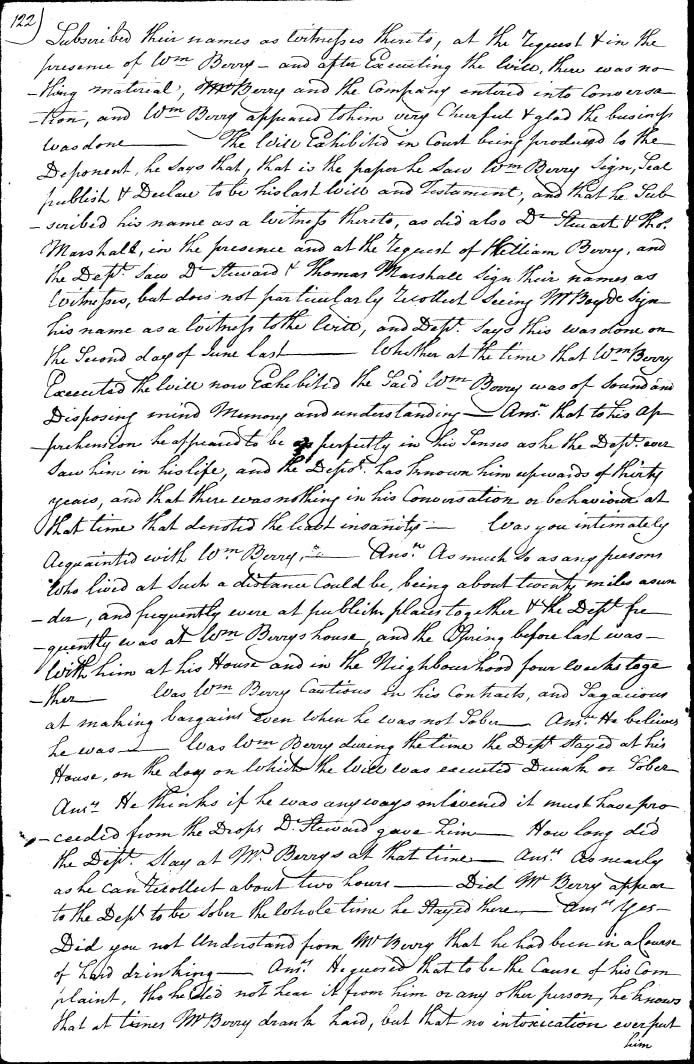 122)
Subscribed their names as Witnesses thereto, at the Request & in the
presence of Wm Berry – and after Executing the Will, there was no
-thing material, Mr Berry and the Company entered into Conversa
-tion, and Wm Berry appeared to him very Chearful & glad the business
was done — The Will Exhibited in Court being produced to the
Deponent, he says that, that is the paper he saw Wm Berry Sign, Seal
publish & Declare to be his last Will and Testament, and that he Sub-
-scribed his name as a Witness thereto, as did also Dr Steuart & Thos.
Marshall, in the presence and at the Request of William Berry, and
the Dept. Saw Dr Steward & Thomas Marshall Sign their names as
Witnesses, but does not particularly Recollect seeing Mr Boyde Sign
his name as a Witness to the Will, and Dept. Says this was done on
the Second day of June last — Whether at the time that Wm Berry
Executed the Will now Exhibited the Said Wm Berry was of Sound and
Disposing mind Memory and understanding — Ansr. that to his ap-
-prehension he appeared to be as perfectly in his Senses as he the Dept. ever
Saw him in his life, and the Dept. has known him upwards of thirty
years, and that there was nothing in his Conversation or behaviour at
that time that denoted the least insanity — Was you intimately
Acquainted with Wm Berry, — Ansr. As much So as any persons
Who lived at Such a distance Could be, being about twenty miles asun
-der, and frequently were at publick places together & the Dept. fre
-quently was at Wm Berrys house, and the Spring before last was –
With him at his House and in the Neighbourhood four Weeks toge
-ther — Was Wm Berry Cautious in his Contracts, and Sagacious
at making bargains even when he was not Sober — Ansr. He believes
he was — Was Wm Berry during the time the Dept. Stayed at his
House, on the day on Which the Will was executed Drunk or Sober
Ansr. He thinks if he was anyways enlivened it must have pro
-ceeded from the Drops Dr. Steward gave him — How long did
the Dept. Stay at Mr. Berrys at that time — Ansr. As nearly
as he can Recollect about two hours — Did Mr Berry appear
to the Dept. to be Sober the Whole time he Stayed there — Ansr Yes –
Did you not Understand from Mr Berry that he had been in a Course
of hard drinking — Ansr. He guessed that to be the Cause of his Com
plaint, tho he did not hear it from him or any other person, he knows
that at times Mr Berry drank hard, but that no intoxication ever put
him